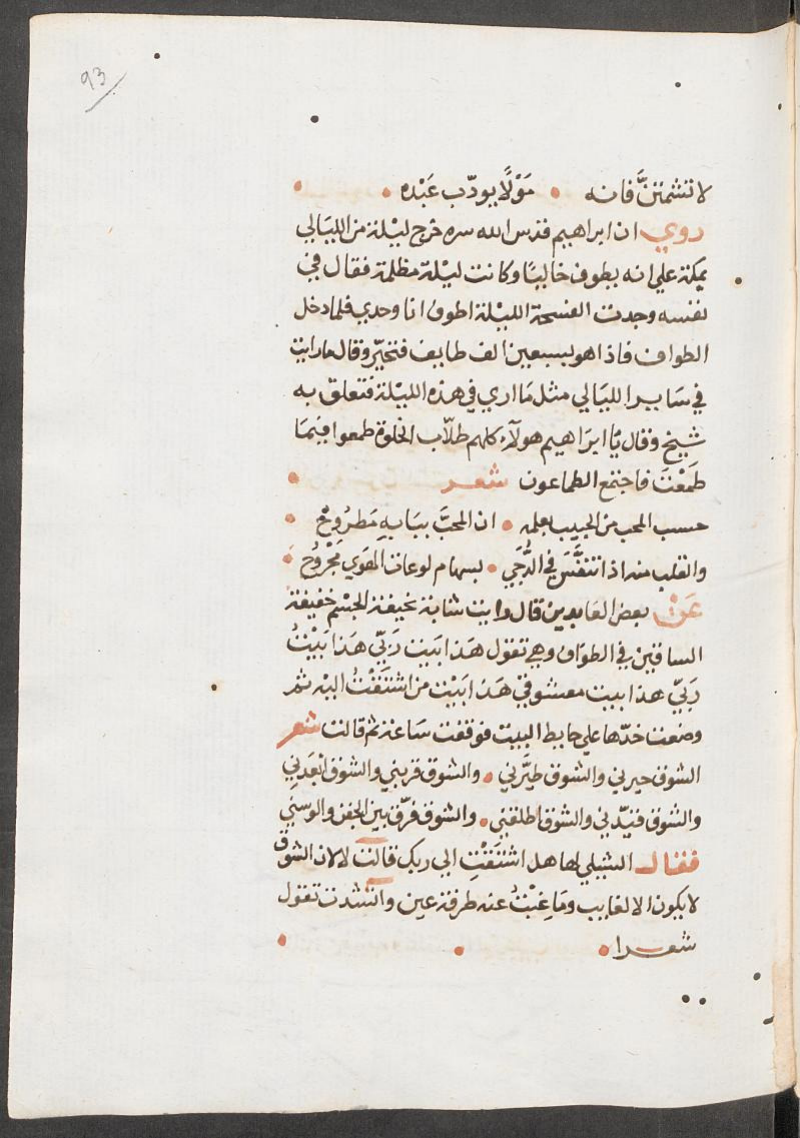 93
لا تشمتنَّ فانه • مَوْلًا يودّب عَبْده •
روي ان ابراهيم قدس الله سره خرج ليْلة من الليَالي
بمكة علي انه يطوف خاليًا وكانت ليْلة مظلمة فقال في
نفسه وجدت الفسحة الليْلة اطوف انا وحدي فلما دخل
الطواف فاذا هو بسبعين الف طايف فتحيّر وقال ما رايت
في سَايرا الليَالي مثل مَا اري في هذه الليْلة فتعلق به
شيخ وقال يٰا ابرَاهيم هولآء كلهم طلّاب الخلوة طمعوا فيمَا
طمَعْتَ فاجتمع الطماعون شعر •
حسب المحب من الحبيب بعلمه • ان المحبَّ ببَابهِ مَطرُوحُ •
والقلب منه اذا تنفَّسَ في الدُّجَي • بسهام لوعات الهَوي مَجْرُوحُ •
عَنْ بعض العَابدين قال رايت شابة نحيفة الجسْم خفيفة
الساقين في الطوَاف وهي تقول هَذا بَيت رَبّي هَذا بَيْتُ
رَبّيْ هذا بيت معشوقيْ هَذا بَيْت من اشتَقْتُ اليْه ثم
وضعت خدّها علي حايط البيت فوقفت سَاعة ثم قالت شعر
الشوق حيرني والشوق طيَّرني • والشوق قربني والشوق ابْعَدني
والشوق قيّدني والشوق اطلقني • والشوق فرّق بين الجفن والوسني
فقال الشبلي لها هل اشتَقْتِ الي ربك قالت لا لان الشوق
لا يكون الا لغايب ومَا غِبْتُ عنه طرفة عين وانشدت تقول
شعرا • • •